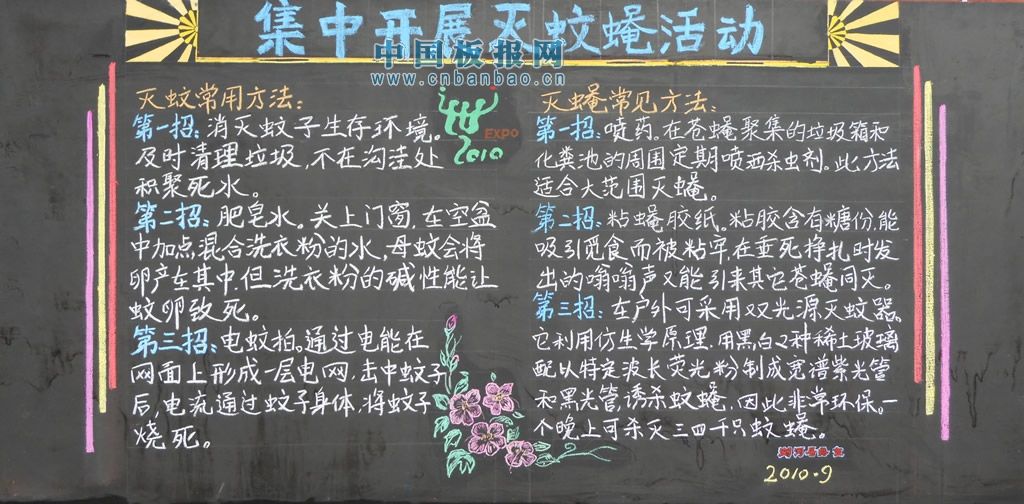 集中开展灭蚊蝇活动
中国板报网
www.cnbanbao.cn
灭蚊常用方法:
第一招:消灭蚊子生存环境。
及时清理垃圾,不在沟洼处
积聚死水。
第二招:肥皂水。关上门窗,在空盆
中加点混合洗衣粉的水,母蚊会将
卵产在其中,但洗衣粉的碱性能让
蚊卵致死。
第三招:电蚊拍,通过电能在
网面上形成一层电网,击中蚊子
后,电流通过蚊子身体,将蚊子
烧死。
EXPO
2010
灭蝇常见方法:
第一招:喷药,在苍蝇聚集的垃圾箱和
化粪池的周围定期喷洒杀虫剂。此方法
适合大范围灭蝇。
第二招:粘蝇胶纸。粘胶含有糖份,能
吸引觅食而被粘牢,在垂死挣扎时发
出的嗡嗡声又能引来其它苍蝇同灭。
第三招:在户外可采用双光源灭蚊器,
它利用仿生学原理,用黑白2种稀土玻璃
配以特定波长荧光粉制成宽谱紫光管
和黑光管,诱杀蚊蝇,因此非常环保。一
个晚上可杀灭三四千只蚊蝇。
2010.9